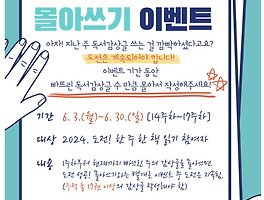 몰아쓰기 이벤트
아자! 지난 주 독서감상글 쓰는 걸 깜빡하셨다고요?
도전은 계속되어야 합니다!
이벤트 기간 동안
빠뜨린 독서감상글 수 만큼 몰아서 작성해주세요!
기간 6. 3.(월)~6. 30.(일) [14주차~17주차]
대상 2024. 도전! 한 주 한 책 읽기 참여자
내용 1주차부터 현재까지 빠뜨린 주의 감상글을 몰아쓰면
도전 성공!